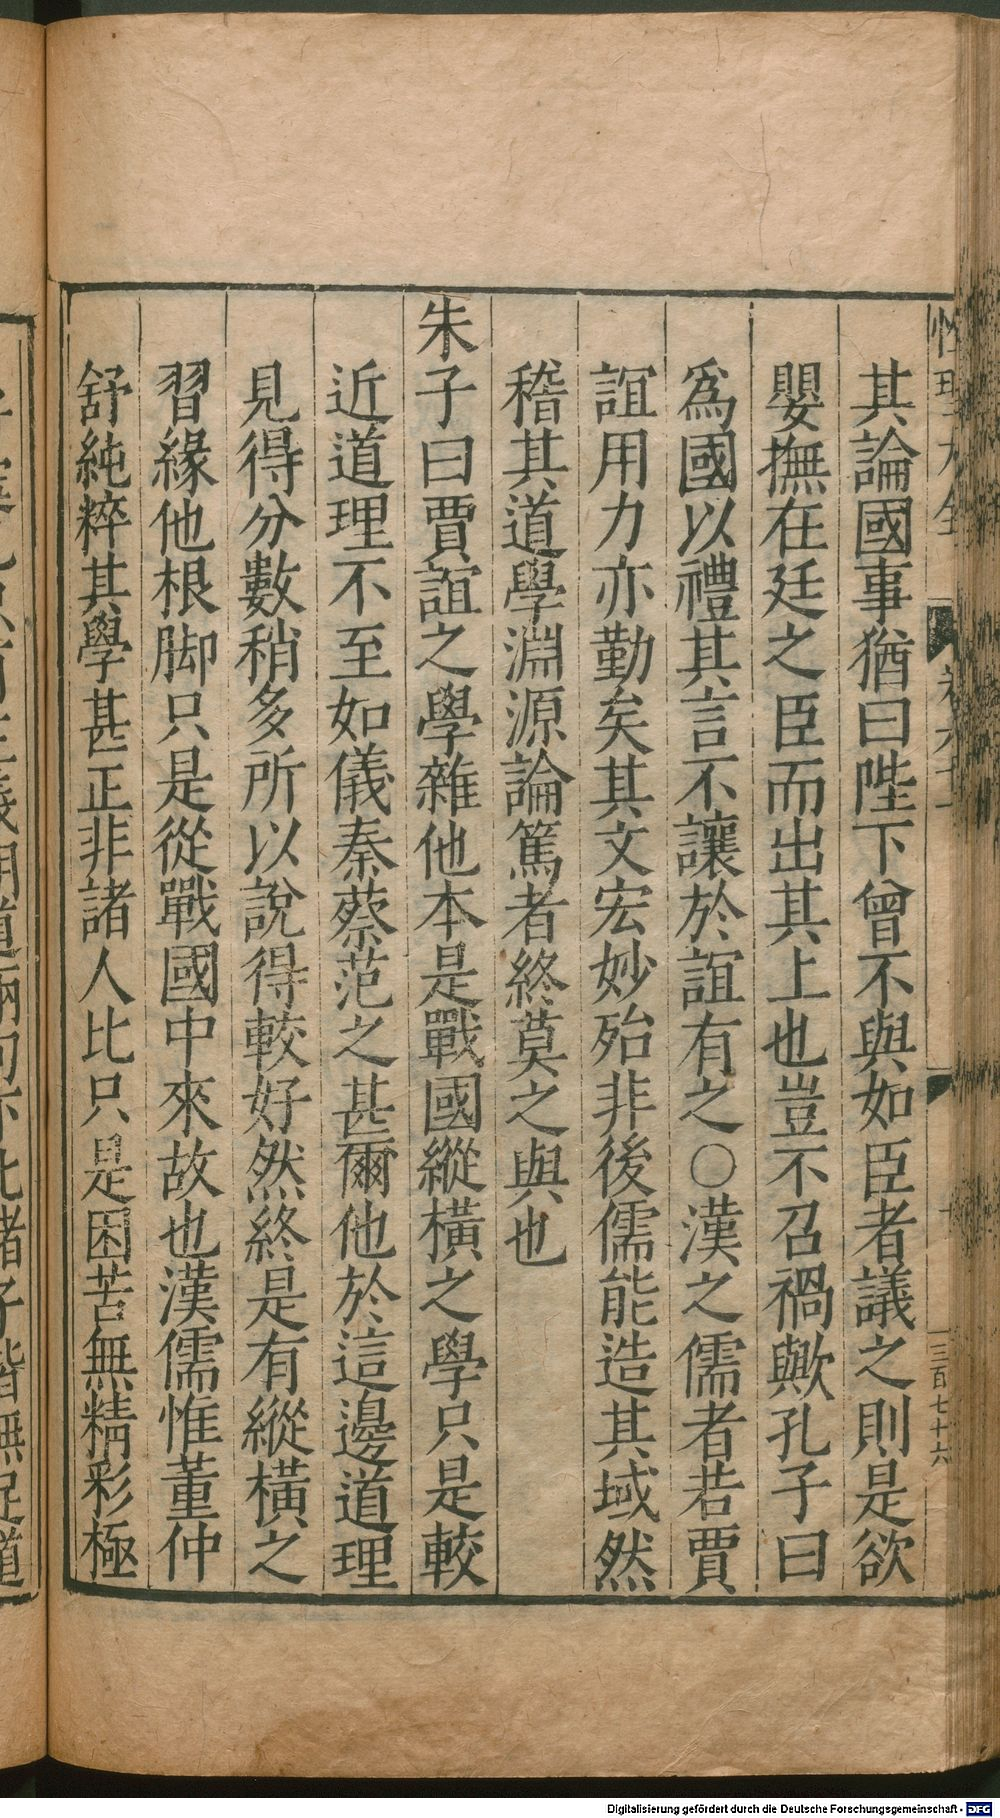 性理大全
卷六十
三百七十六
其論國事猶曰陛下曾不與如臣者議之則是欲
嬰撫在廷之臣而出其上也豈不召禍歟孔子曰
爲國以禮其言不讓於誼有之○漢之儒者若賈
誼用力亦勤矣其文宏妙殆非後儒能造其域然
稽其道學淵源論篤者終莫之與也
朱子曰賈誼之學雜他本是戰國縱橫之學只是較
近道理不至如儀秦蔡范之甚爾他於這邊道理
見得分數稍多所以說得較好然終是有縱橫之
習緣他根脚只是從戰國中來故也漢儒惟董仲
舒純粹其學甚正非諸人比只是困苦無精彩極
諸子皆無足道
Digitalisierung gefördert durch die Deutsche Forschungsgemeinschaft - DFG